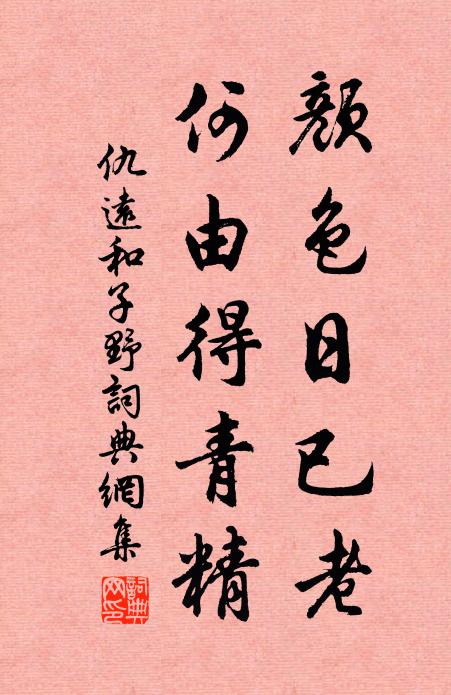 顏色日已老
何由得青精
仇遠和子野詞典網集
詞典網印